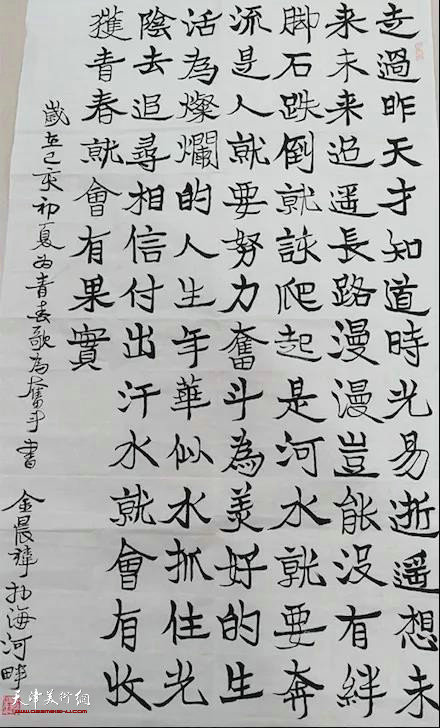 走過昨天才知道時光易逝遥想未
来未来迢遥長路漫漫豈能没有絆
脚石跌倒就該爬起是河水就要奔
流是人就要努力奮斗為美好的生
活為燦爛的人生年華似水抓住光
陰去追尋相信付出汗水就會有收
獲青春就會有果實
歲在己亥初夏為青春歌為奮斗書
金晨禕於海河畔
天津美術網